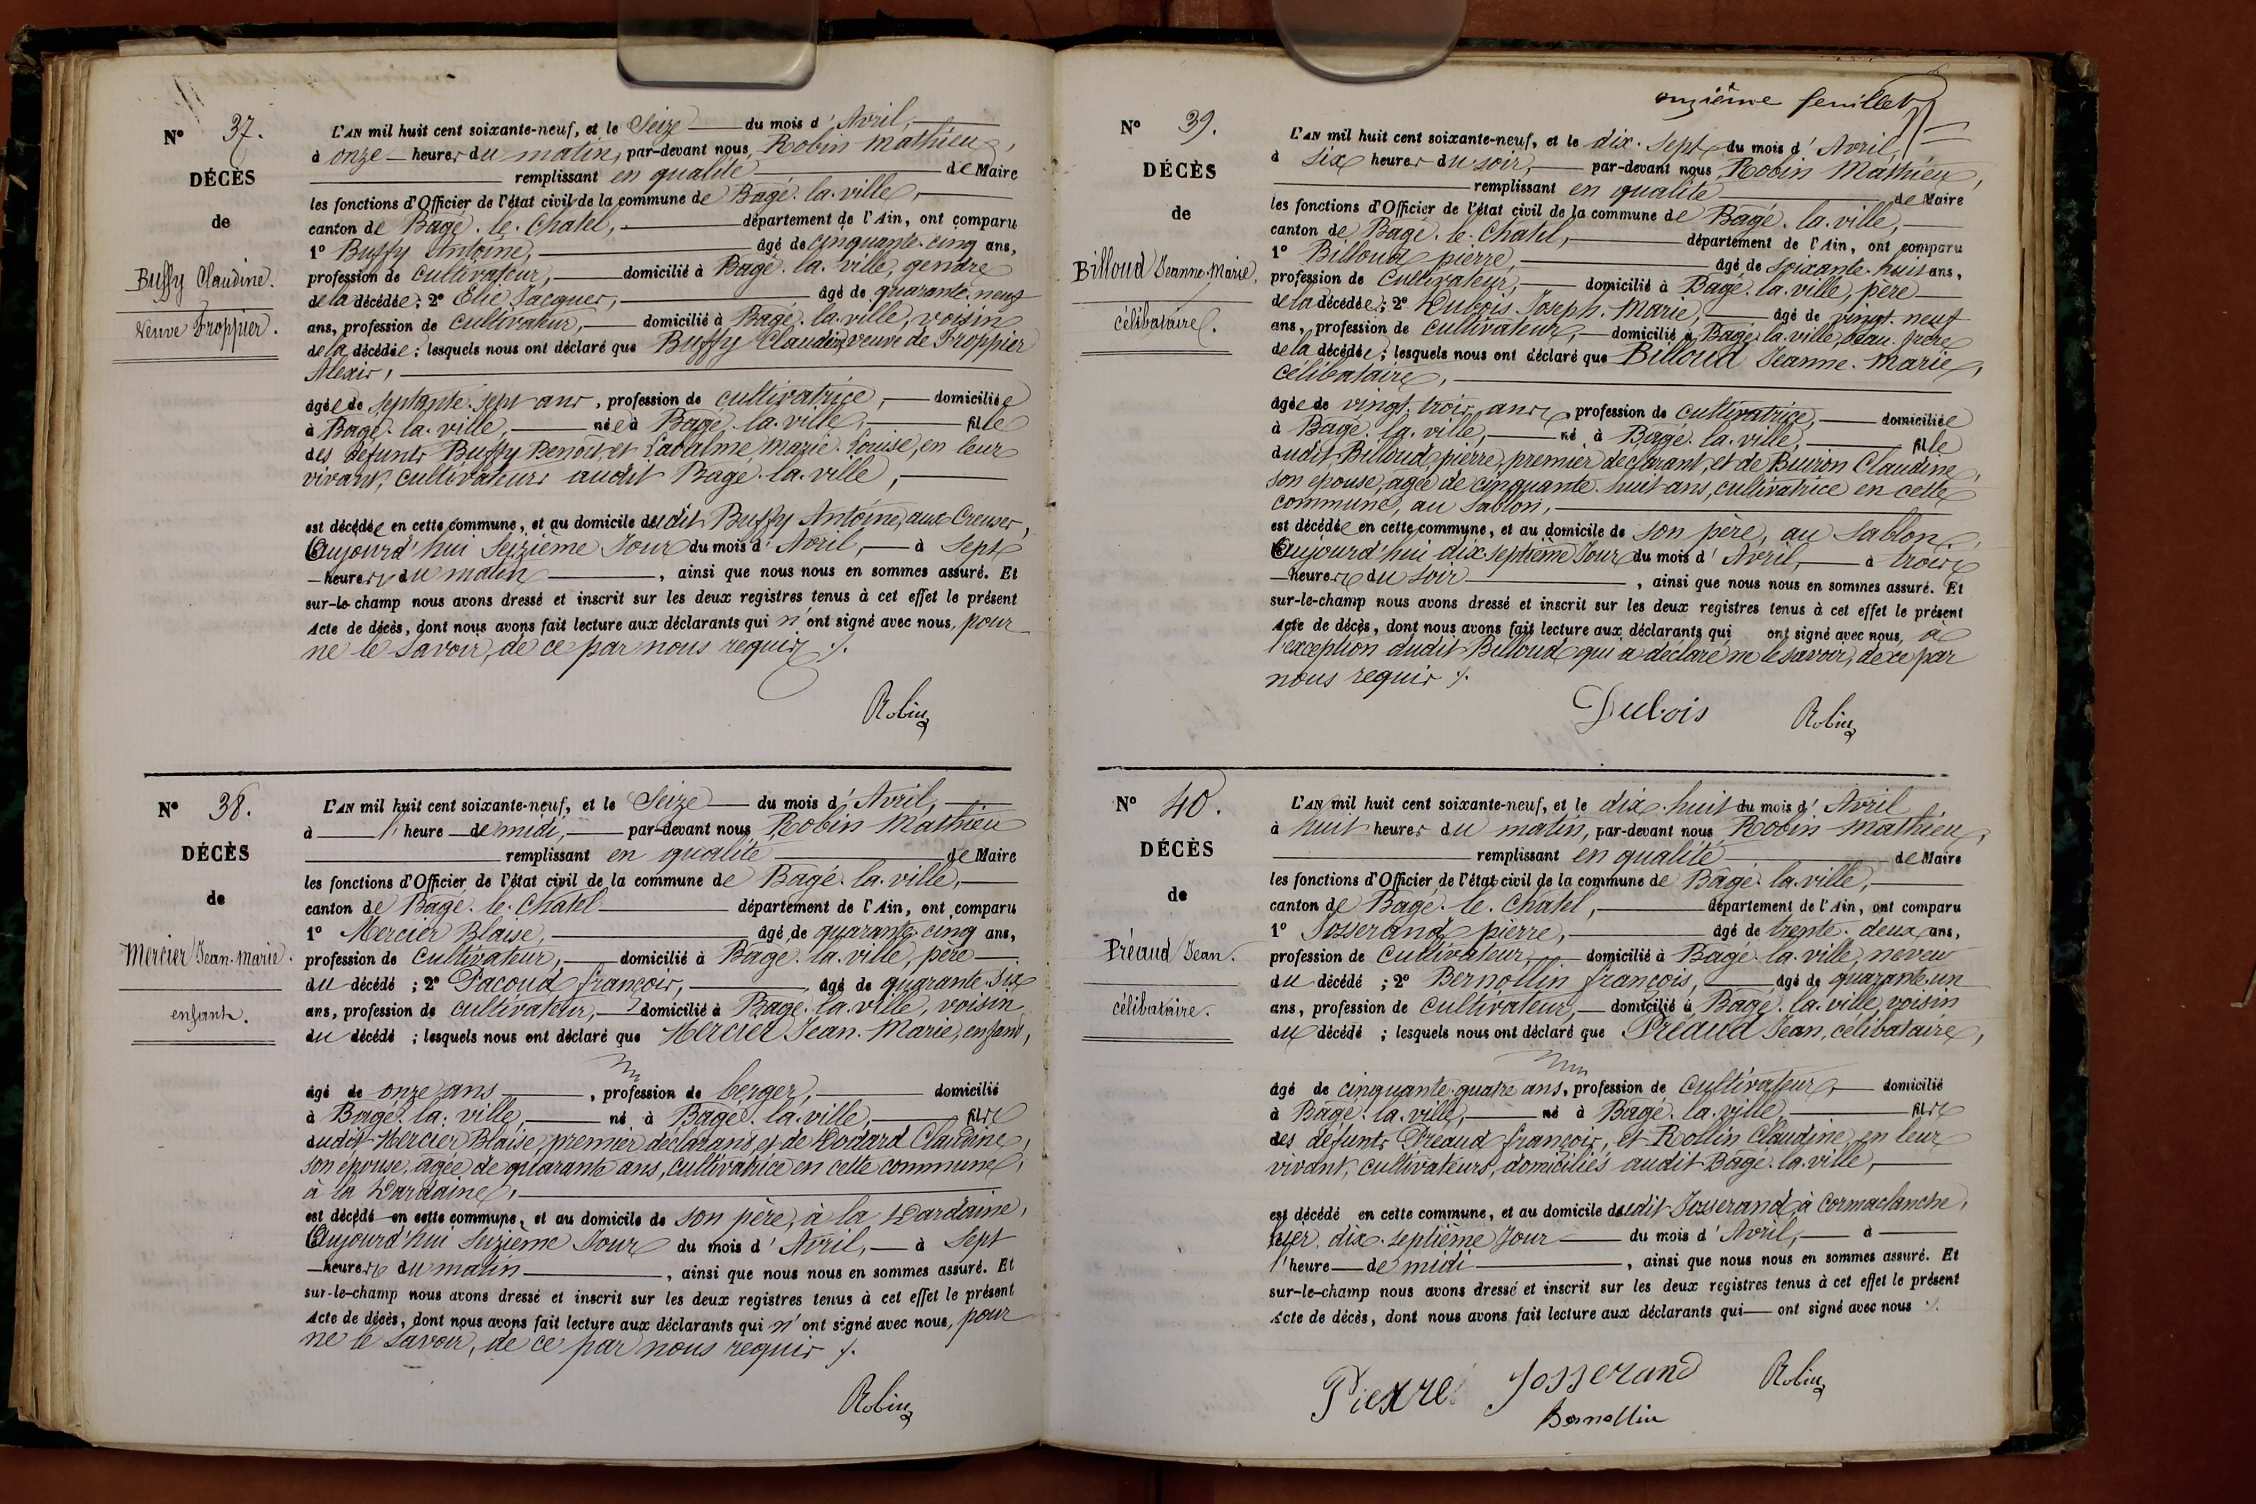 N° 37.
DÉCÈS
de
Buffy Claudine.
veuve Froppier.
L'AN mil huit cent soixante-neuf, et le Seize du mois d'Avril,
à onze heures du matin, par-devant nous, Robin Mathieu,
remplissant en qualité de Maire
les fonctions d'Officier de l'état civil de la commune de Bagé-la-ville,
canton de Bagé-le-Chatel, département de l'Ain, ont comparu
1° Buffy Antoine, âgé de cinquante-cinq ans,
profession de cultivateur, domicilié à Bagé-la-ville, gendre
de la décédée; 2° Elie Jacques, âgé de quarante-neuf
ans, profession de cultivateur, domicilié à Bagé-la-ville, voisin
de la décédée; lesquels nous ont déclaré que Buffy Claudine, veuve de Froppier
Alexis,
âgée de septante-sept ans, profession de cultivatrice, domiciliée
à Bagé-la-ville, née à Bagé-la-ville, fille
des défunts Buffy Benoît et Labalme Marie-Louise, en leur
vivant, cultivateurs audit Bagé-la-ville,
est décédée en cette commune, et au domicile dudit Buffy Antoine, aux Creuses,
Aujourd'hui Seizième Jour du mois d'Avril, à Sept
heures du matin, ainsi que nous nous en sommes assuré. Et
sur-le-champ nous avons dressé et inscrit sur les deux registres tenus à cet effet le présent
Acte de décès, dont nous avons fait lecture aux déclarants qui n'ont signé avec nous, pour
ne le savoir, de ce par nous requis ./.
Robin
N° 38.
DÉCÈS
de
Mercier Jean-Marie.
enfant.
L'AN mil huit cent soixante-neuf, et le Seize du mois d'Avril,
à l'heure de midi, par-devant nous Robin Mathieu
remplissant en qualité de Maire
les fonctions d'Officier de l'état civil de la commune de Bagé-la-ville,
canton de Bagé-le-Chatel département de l'Ain, ont comparu
1° Mercier Blaise, âgé de quarante-cinq ans,
profession de cultivateur, domicilié à Bagé-la-ville, père
du décédé; 2° Pacoud françois, âgé de quarante-six
ans, profession de cultivateur, domicilié à Bagé-la-ville, voisin
du décédé; lesquels nous ont déclaré que Mercier Jean-Marie, enfant,
âgé de onze ans, profession de berger, domicilié
à Bagé-la-ville, né à Bagé-la-ville, fils
dudit Mercier Blaise, premier déclarant, et de Dodard Claudine,
son épouse, âgée de quarante ans, cultivatrice en cette commune,
à la Dardaine,
est décédé en cette commune, et au domicile de son père, à la Dardaine,
Aujourd'hui Seizième Jour du mois d'Avril, à Sept
heures du matin, ainsi que nous nous en sommes assuré. Et
sur-le-champ nous avons dressé et inscrit sur les deux registres tenus à cet effet le présent
Acte de décès, dont nous avons fait lecture aux déclarants qui n'ont signé avec nous, pour
ne le savoir, de ce par nous requis ./.
Robin
onzième feuillet
N° 39.
DÉCÈS
de
Billoud Jeanne-Marie.
célibataire.
L'AN mil huit cent soixante-neuf, et le dix-sept du mois d'Avril
à six heures du soir, par-devant nous, Robin Mathieu,
remplissant en qualité de Maire
les fonctions d'Officier de l'état civil de la commune de Bagé-la-ville,
canton de Bagé-le-Chatel, département de l'Ain, ont comparu
1° Billoud pierre, âgé de soixante-huit ans,
profession de cultivateur, domicilié à Bagé-la-ville, père
de la décédée; 2° Dubois Joseph-Marie, âgé de vingt-neuf
ans, profession de cultivateur, domicilié à Bagé-la-ville, beau-frère
de la décédée; lesquels nous ont déclaré que Billoud Jeanne-Marie,
célibataire,
âgée de vingt-trois ans, profession de cultivatrice, domiciliée
à Bagé-la-ville, né à Bagé-la-ville, fille
dudit Billoud pierre, premier déclarant, et de Buiron Claudine,
son épouse, âgée de cinquante-huit ans, cultivatrice en cette
commune, au Sablon,
est décédée en cette commune, et au domicile de son père, au Sablon.
Aujourd'hui dix-septième Jour du mois d'Avril, à trois
heures du soir, ainsi que nous nous en sommes assuré. Et
sur-le-champ nous avons dressé et inscrit sur les deux registres tenus à cet effet le présent
Acte de décès, dont nous avons fait lecture aux déclarants qui ont signé avec nous, à
l'exception dudit Billoud qui a déclaré ne le savoir, de ce par
nous requis ./.
Dubois Robin
N° 40.
DÉCÈS
de
Préaud Jean.
célibataire.
L'AN mil huit cent soixante-neuf, et le dix-huit du mois d'Avril
à huit heures du matin, par-devant nous Robin Mathieu,
remplissant en qualité de Maire
les fonctions d'Officier de l'état civil de la commune de Bagé-la-ville,
canton de Bagé-le-Chatel, département de l'Ain, ont comparu
1° Josserand pierre, âgé de trente-deux ans,
profession de cultivateur, domicilié à Bagé-la-ville, neveu
du décédé; 2° Bernollin françois, âgé de quarante-un
ans, profession de cultivateur, domicilié à Bagé-la-ville, voisin
du décédé; lesquels nous ont déclaré que Préaud Jean, célibataire,
âgé de cinquante-quatre ans, profession de cultivateur, domicilié
à Bagé-la-ville, né à Bagé-la-ville, fils
des défunts Préaud françois, et Rollin Claudine, en leur
vivant, cultivateurs, domiciliés audit Bagé-la-ville,
est décédé en cette commune, et au domicile dudit Josserand, à Cormaclanche,
hier, dix-septième Jour du mois d'Avril, à
l'heure de midi, ainsi que nous nous en sommes assuré. Et
sur-le-champ nous avons dressé et inscrit sur les deux registres tenus à cet effet le présent
Acte de décès, dont nous avons fait lecture aux déclarants qui ont signé avec nous ./.
Pierre Josserand Robin
Bernollin